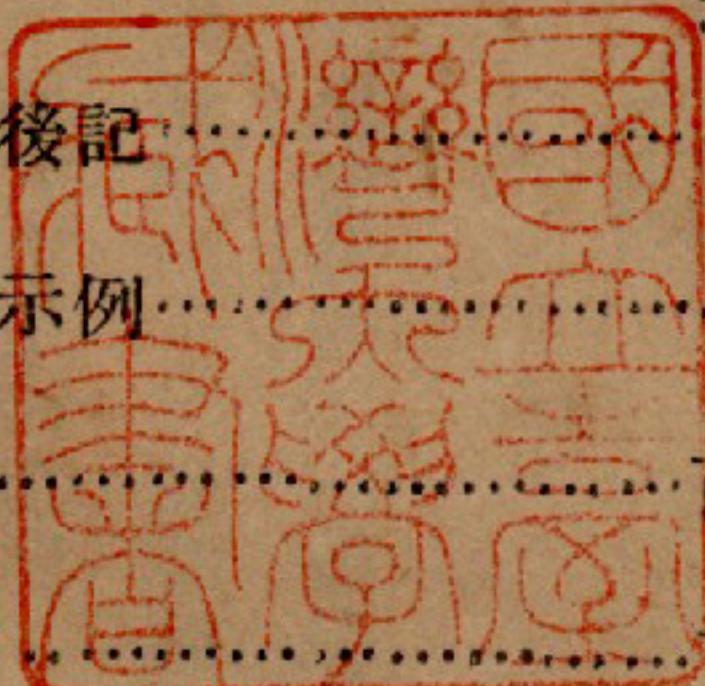 後記
示例
國立臺
灣大學
藏書